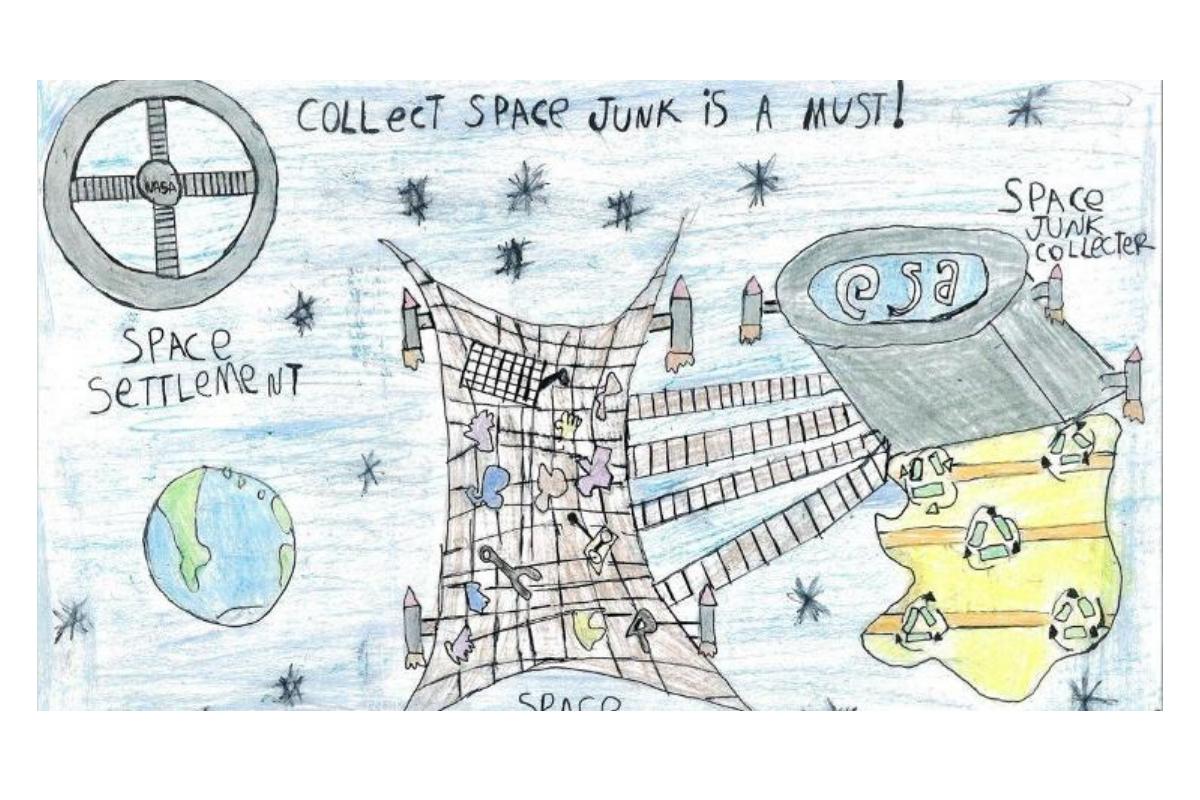 COLLecT SPACe JUNK iS A MUST!
NASA
SPACe
SeTTLeMeNT
SPACe
JUNK
COLLECTeR
esa
SPACe